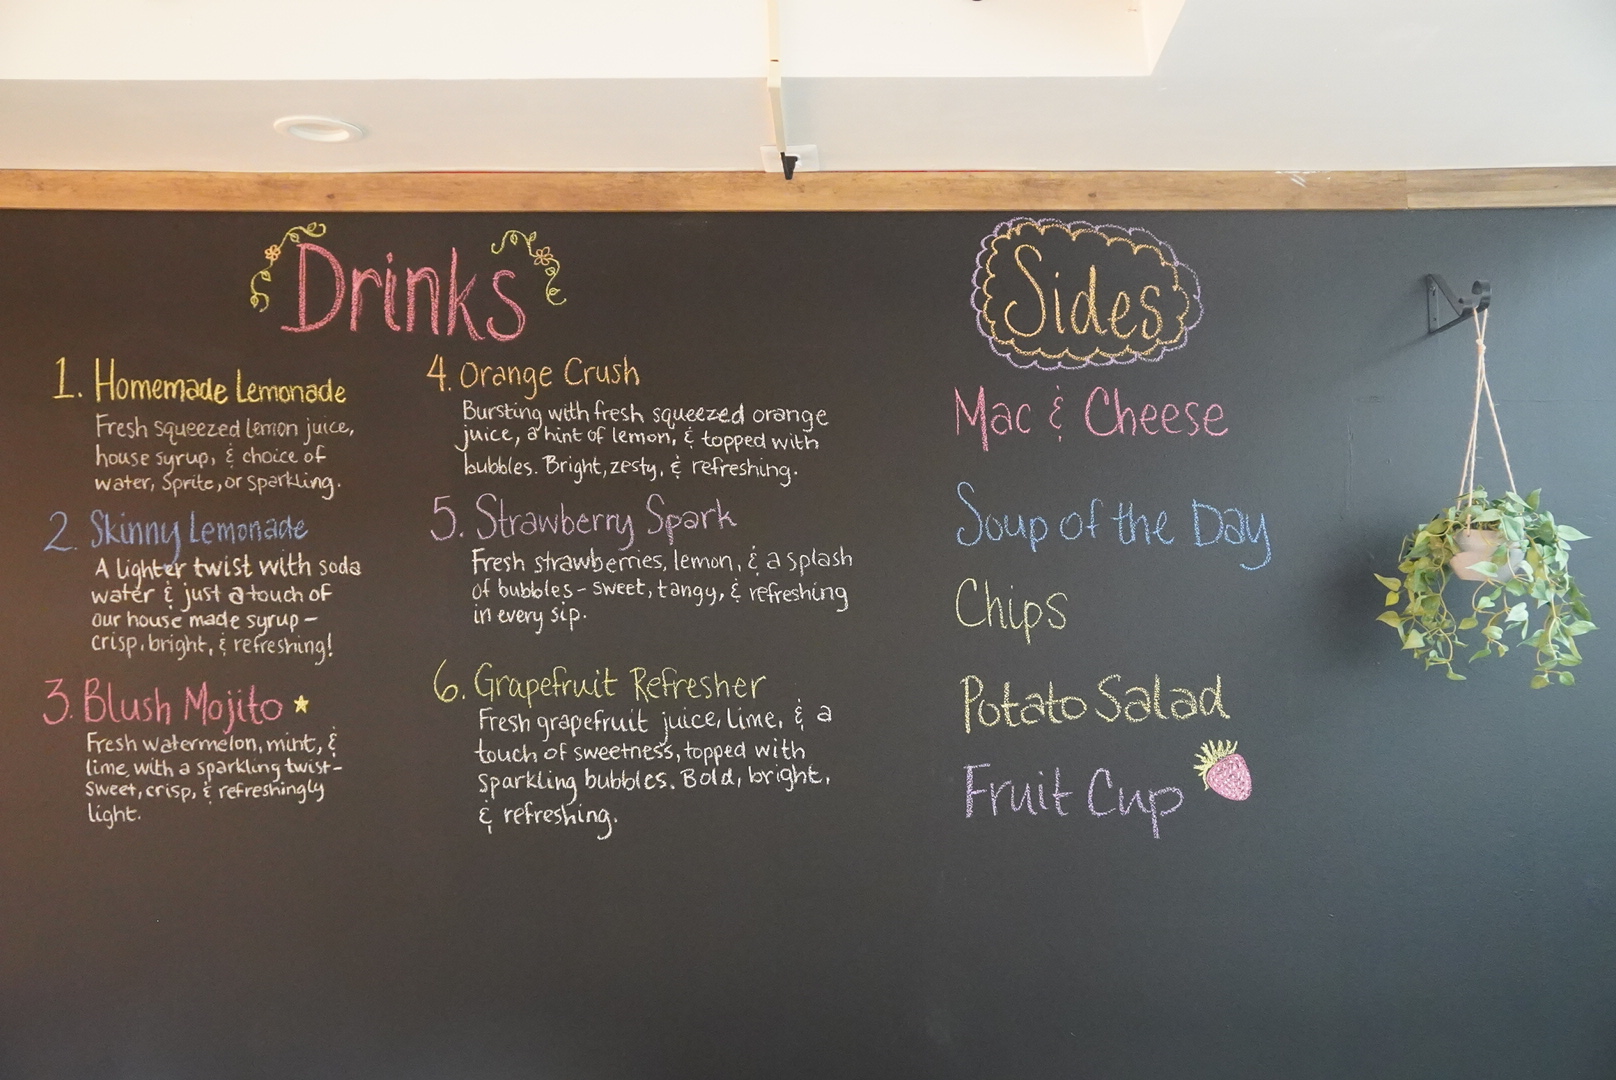 Drinks
1. Homemade Lemonade
Fresh squeezed lemon juice,
house syrup, & choice of
water, Sprite, or sparkling.
2. Skinny Lemonade
A lighter twist with soda
water & just a touch of
our house made syrup -
crisp, bright, & refreshing!
3. Blush Mojito
Fresh watermelon, mint, &
lime, with a sparkling twist-
sweet, crisp, & refreshingly
light.
4. Orange Crush
Bursting with fresh squeezed orange
juice, a hint of lemon, & topped with
bubbles. Bright, zesty, & refreshing.
5. Strawberry Spark
Fresh strawberries, lemon, & a splash
of bubbles - sweet, tangy, & refreshing
in every sip.
6. Grapefruit Refresher
Fresh grapefruit juice, lime, & a
touch of sweetness, topped with
sparkling bubbles. Bold, bright,
& refreshing.
Sides
Mac & Cheese
Soup of the Day
Chips
Potato Salad
Fruit Cup